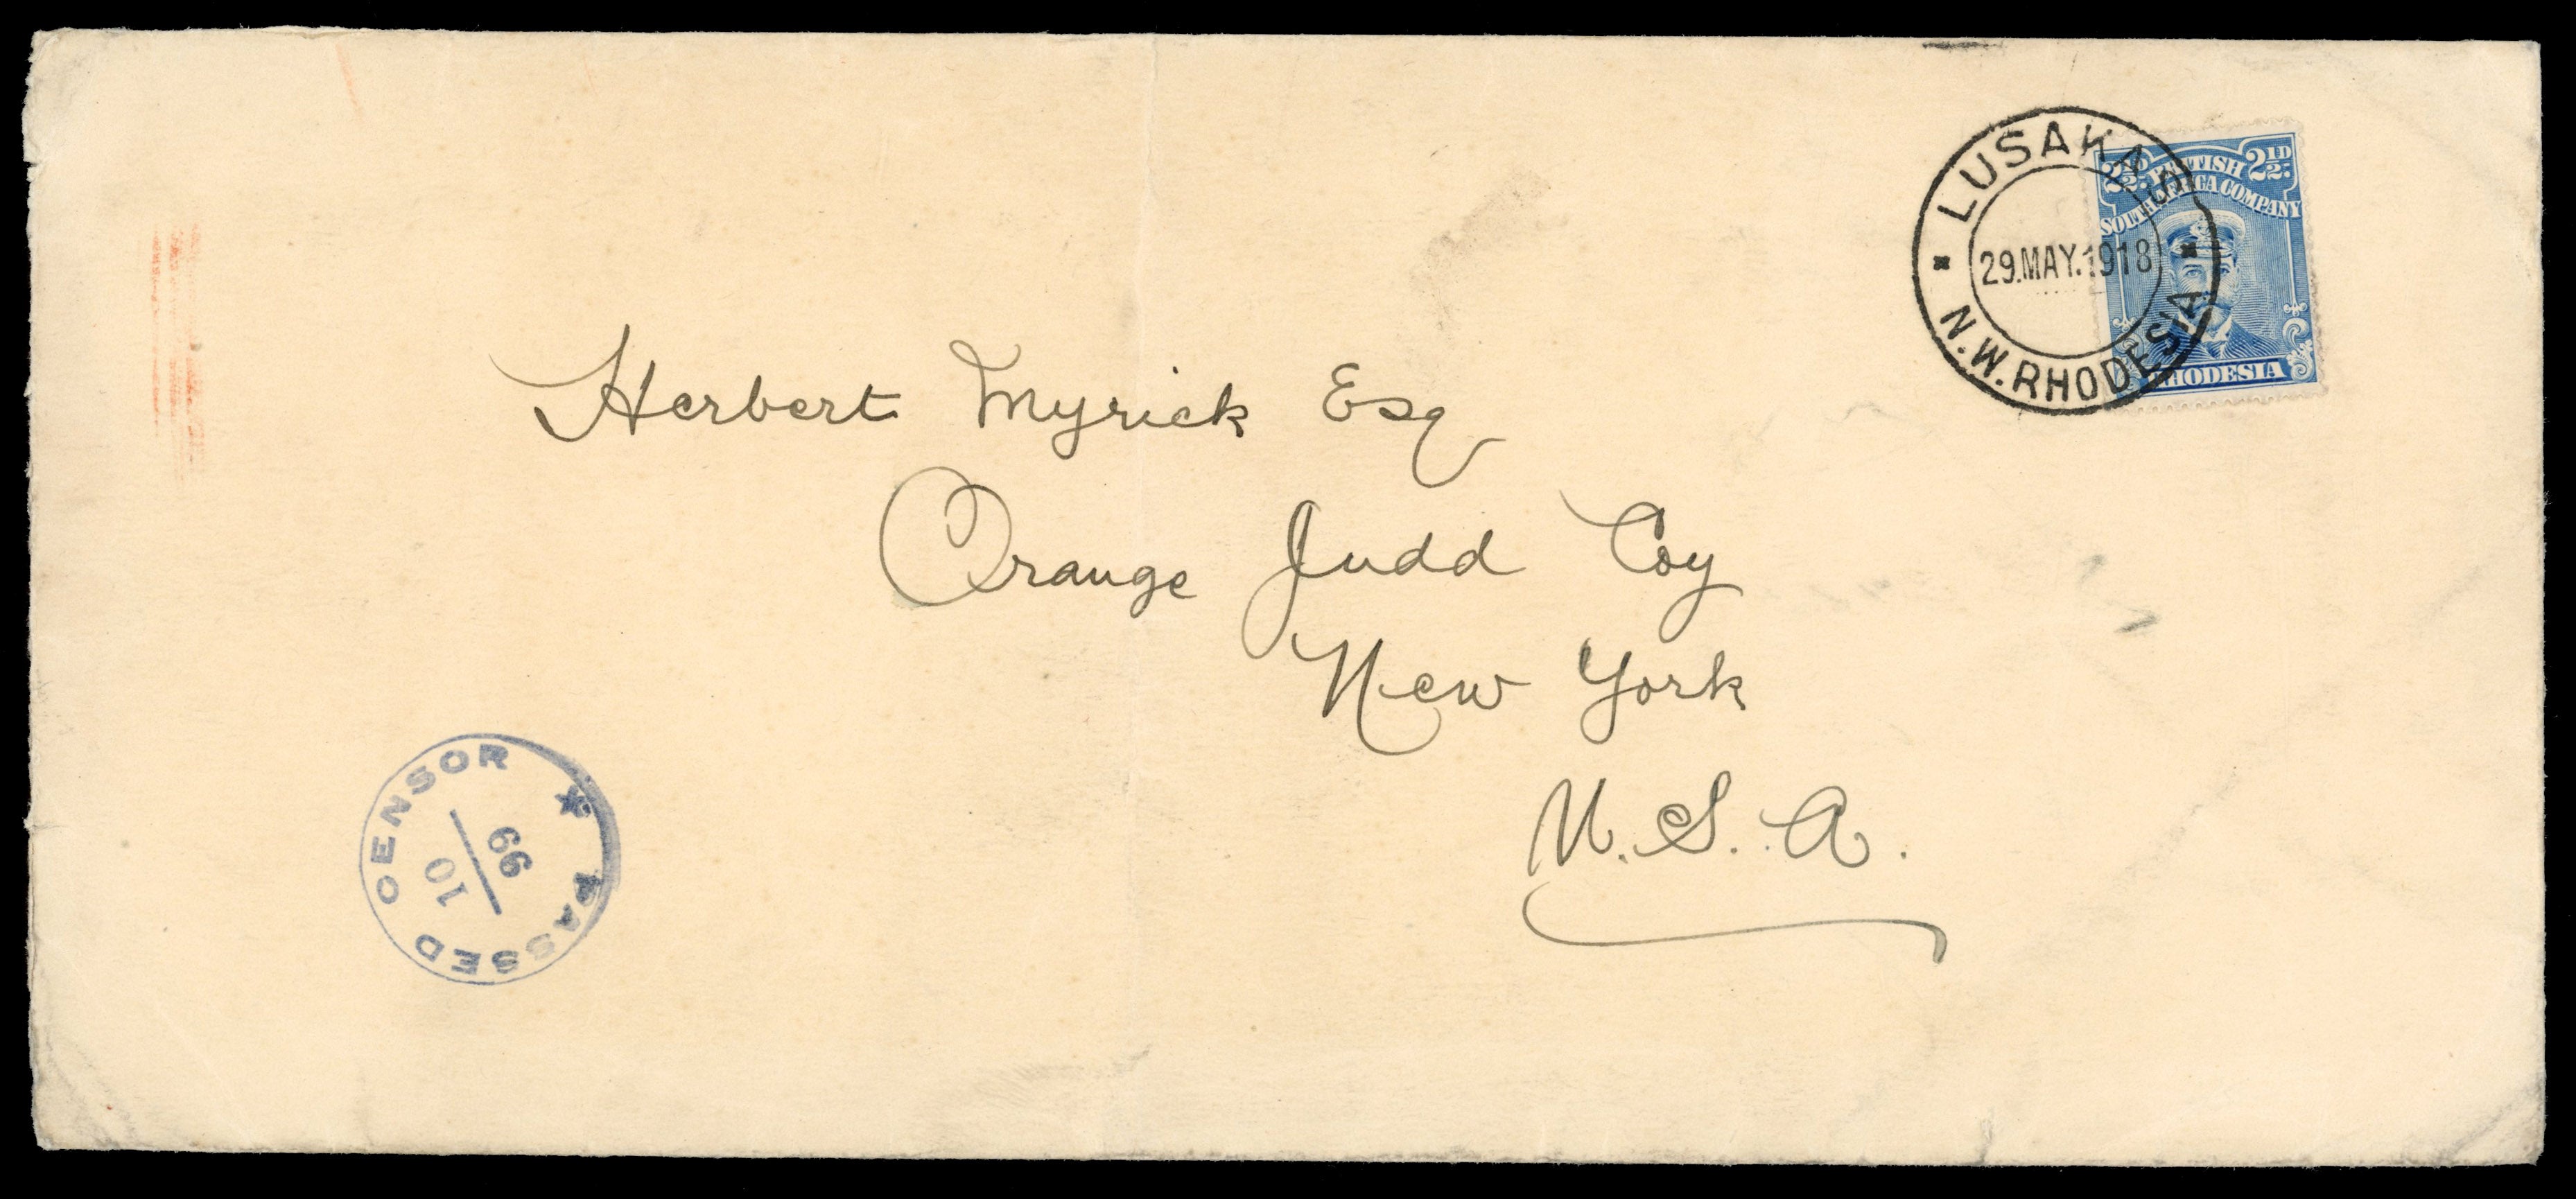 LUSAKAS
29.MAY.1918
N.W.RHODESIA
2½D BRITISH 2½D
SOUTH AFRICA COMPANY
RHODESIA
Herbert Myrick Esq
Orange Judd Coy
New York
U.S.A.
PASSED CENSOR
99
10